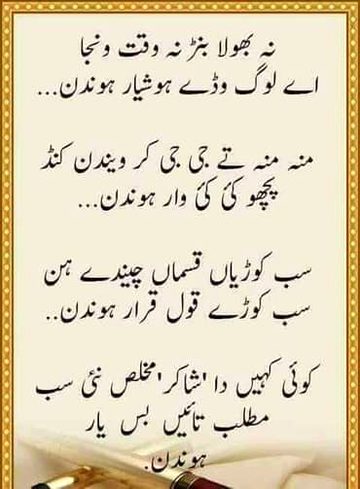 نہ بھولا بنڑ نہ وقت ونجا
اے لوگ وڈے ہوشیار ہوندن...
منہ منہ تے جی جی کر ویندن کنڈ
پچھو کئ کئ وار ہوندن...
سب کوڑیاں قسماں چیندے ہن
سب کوڑے قول قرار ہوندن..
کوئی کہیں دا 'شاکر' مخلص نئ سب
مطلب تائیں بس یار
ہوندن.